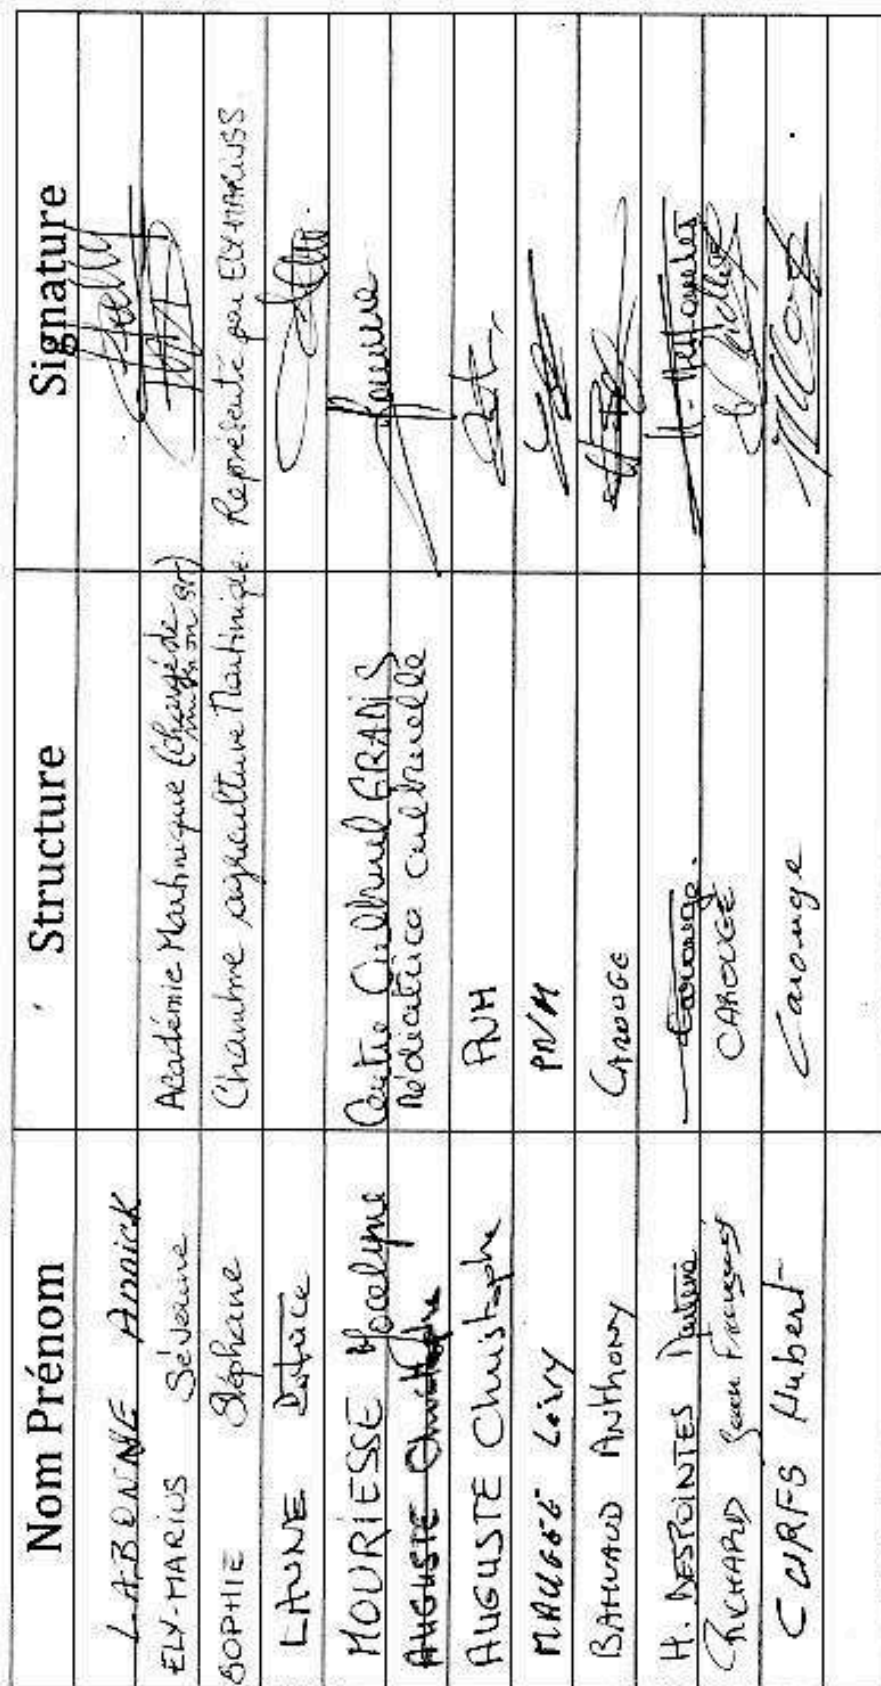 Nom Prénom Structure Signature
LABONNE Annick
ELY-MARIUS Séverine Académie Martinique (chargé de mission
SOPHIE Stéphane Chambre agriculture Martinique. Représenté par ELY-MARIUSS.
LAUNE Patrice
MOURIESSE Jocelyne Centre Culturel
AUGUSTE Christophe Médiatrice culturelle
AUGUSTE Christophe PNM
MAUGEE Lévy PNM
BAHUAUD ANTHONY CAROUGE
H. DESPOINTES Martine Carouge.
RICHARD Jean François CAROUGE
CURFS Hubert Carouge